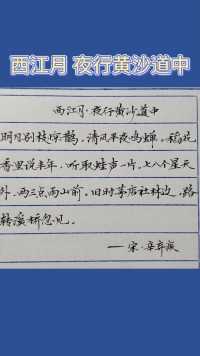 西江月 夜行黄沙道中
西江月·夜行黄沙道中
明月别枝惊鹊，清风半夜鸣蝉。稻花
香里说丰年，听取蛙声一片。七八个星天
外，两三点雨山前。旧时茅店社林边，路
转溪桥忽见。
——宋·辛弃疾